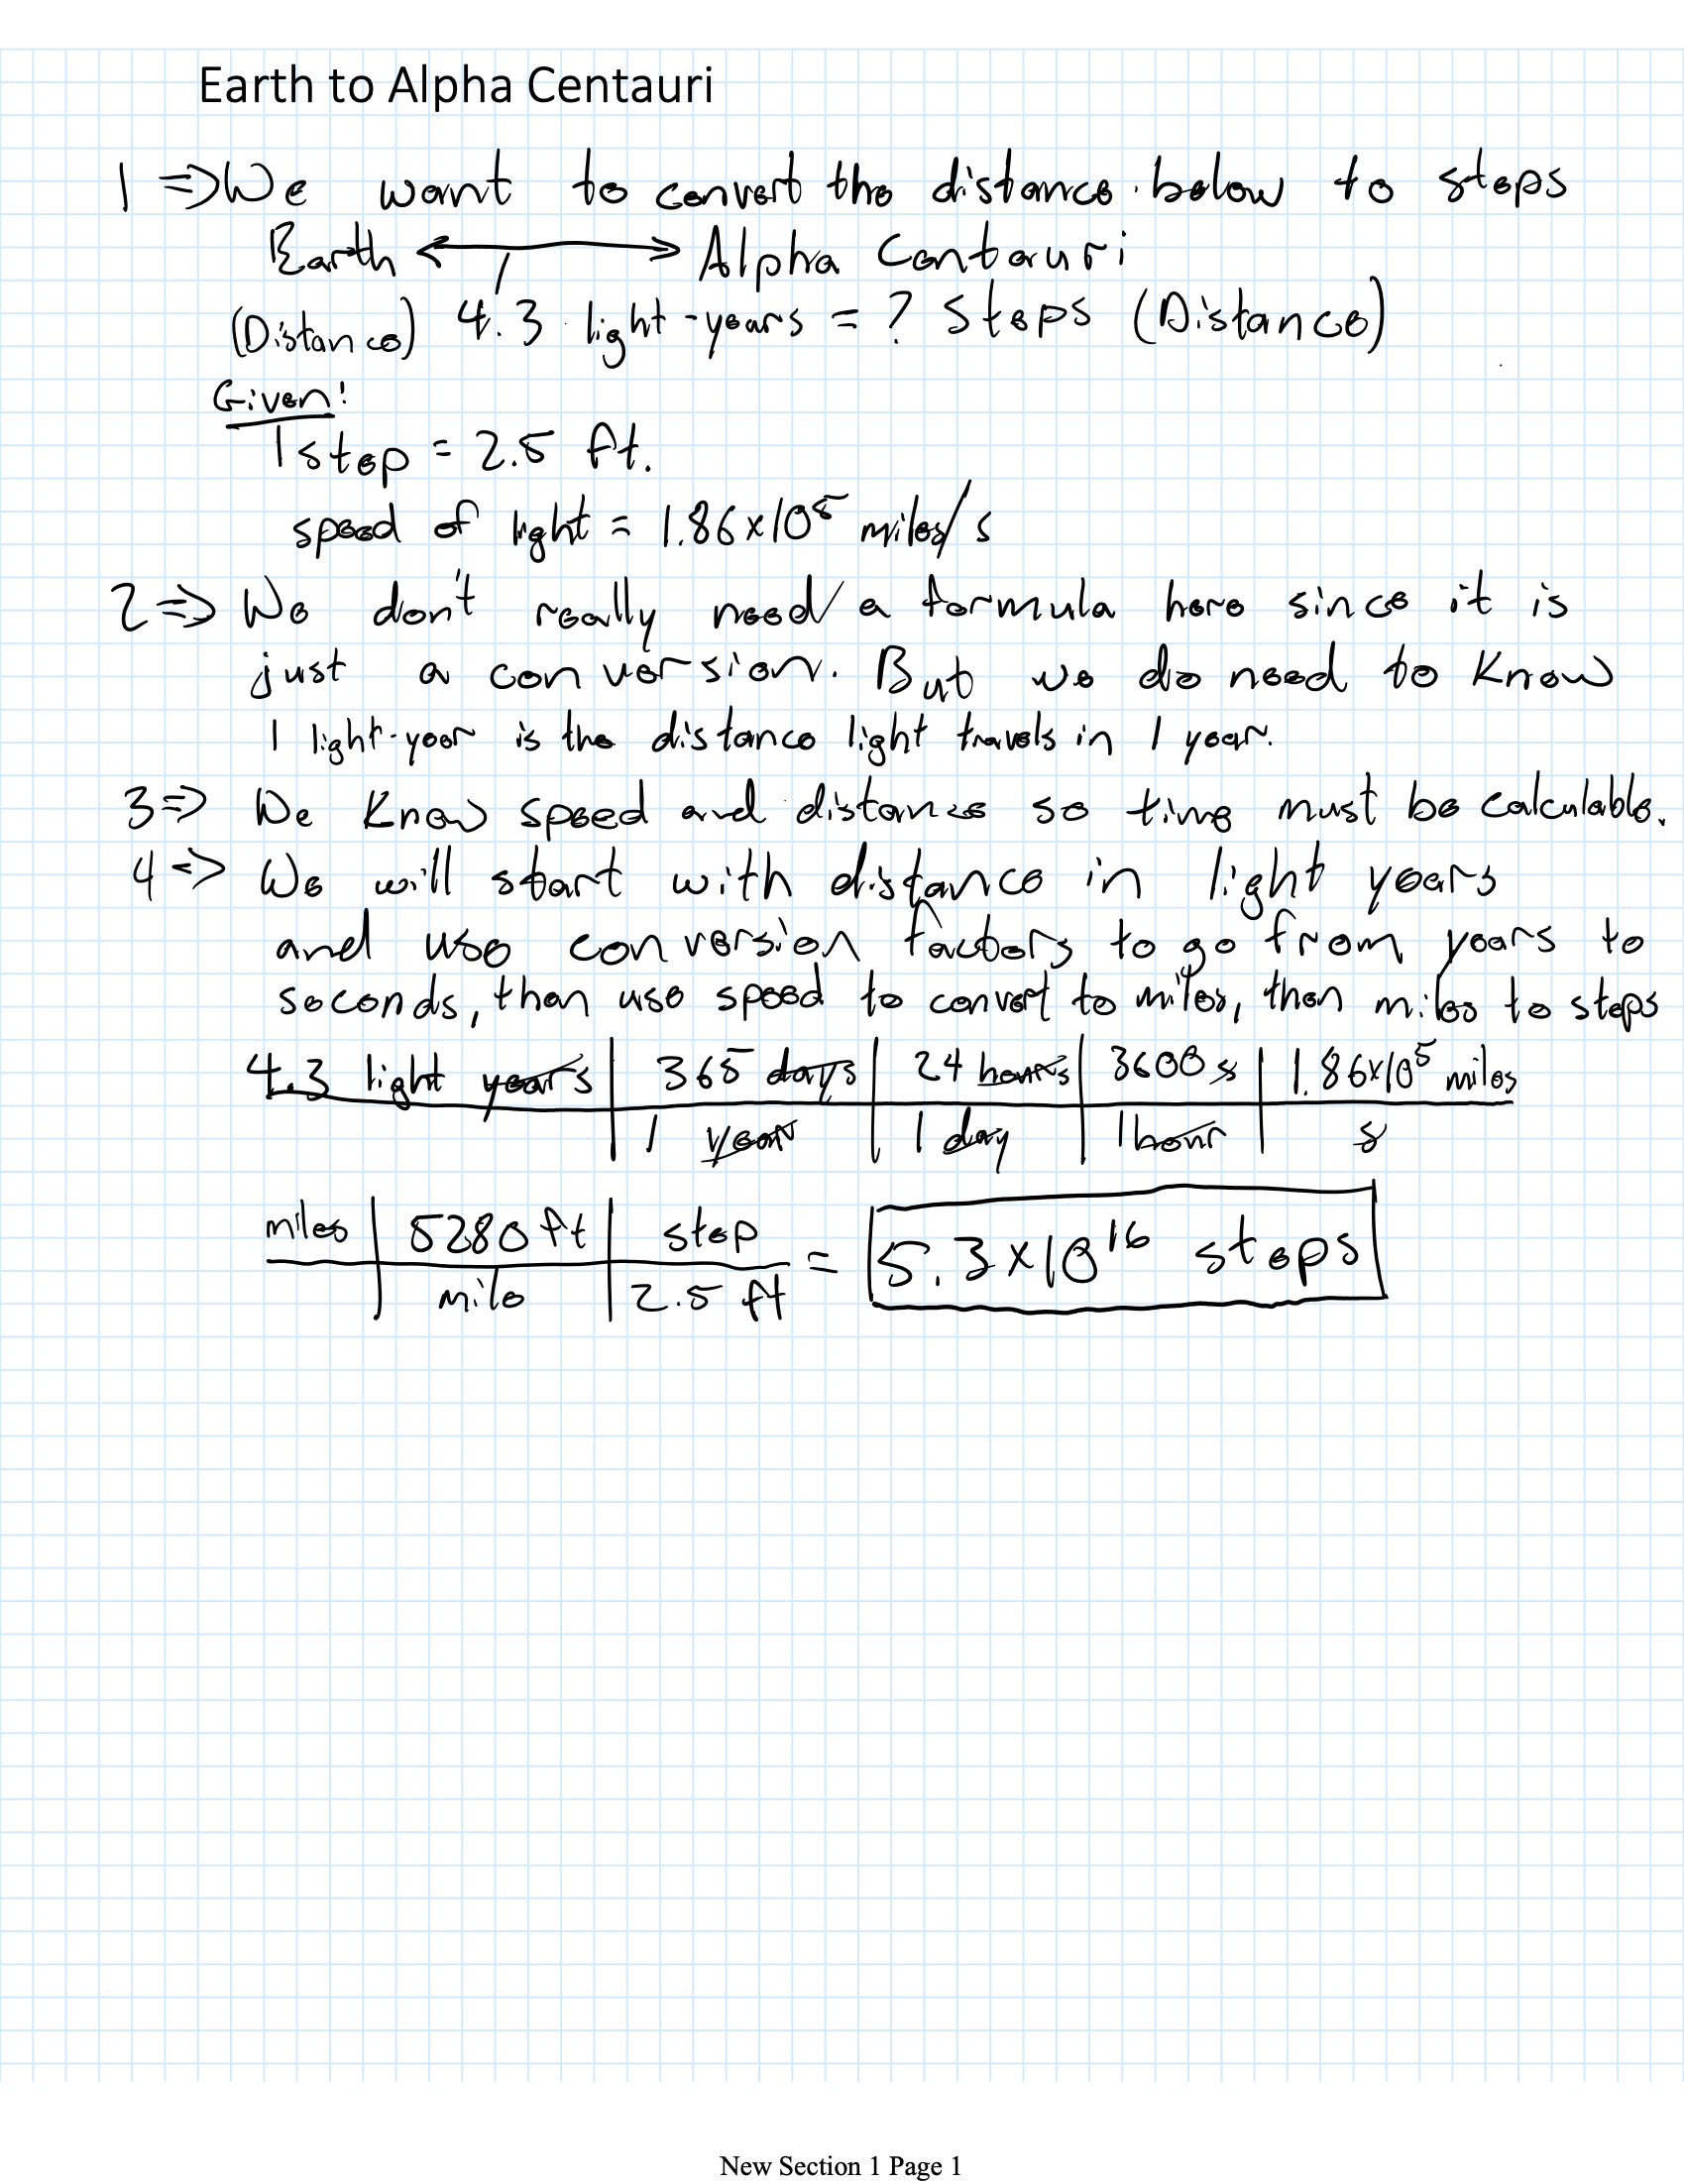 Earth to Alpha Centauri
1 ⇒ We want to convert the distance below to steps
Earth ↔ Alpha Centauri
(Distance) 4.3 light-years = ? Steps (Distance)
Given:
1 step = 2.5 ft.
speed of light = 1.86×10⁵ miles/s
2 ⇒ We don't really need a formula here since it is
just a conversion. But we do need to know
1 light-year is the distance light travels in 1 year.
3 ⇒ We know speed and distance so time must be calculable.
4 ⇒ We will start with distance in light years
and use conversion factors to go from years to
seconds, then use speed to convert to miles, then miles to steps
4.3 light years | 365 days | 24 hours | 3600 s | 1.86×10⁵ miles
1 year | 1 day | 1 hour | s
miles | 5280 ft | step
mile | 2.5 ft = 5.3×10¹⁶ steps
New Section 1 Page 1